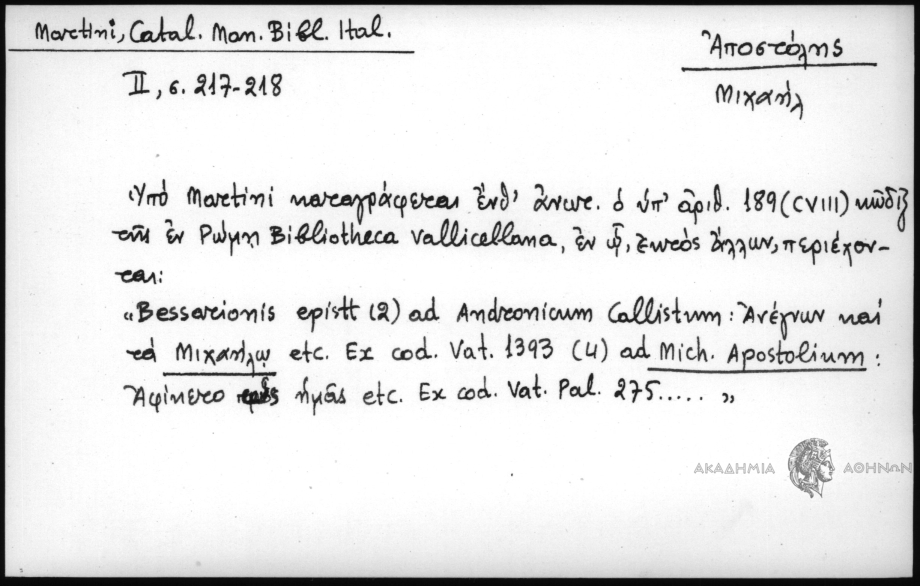 Martini, Catal. Man. Bibl. Ital.
II, σ. 217-218
Ἀποστόλης
Μιχαήλ
Ὑπό Martini καταγράφεται ἔνθ' ἀνωτ. ὁ ὑπ' ἀριθ. 189 (CVIII) κῶδιξ
τῆς ἐν Ρώμῃ Bibliotheca Vallicellana, ἐν ᾧ, ἐκτός ἄλλων, περιέχον-
ται:
"Bessarionis epistt (2) ad Andronicum Callistum: Ἀνέγνων καί
τά Μιχαήλῳ etc. Ex cod. Vat. 1393 (4) ad Mich. Apostolium:
Ἀφίκετο πρός ἡμᾶς etc. Ex cod. Vat. Pal. 275..... "
ΑΚΑΔΗΜΙΑ ΑΘΗΝΩΝ